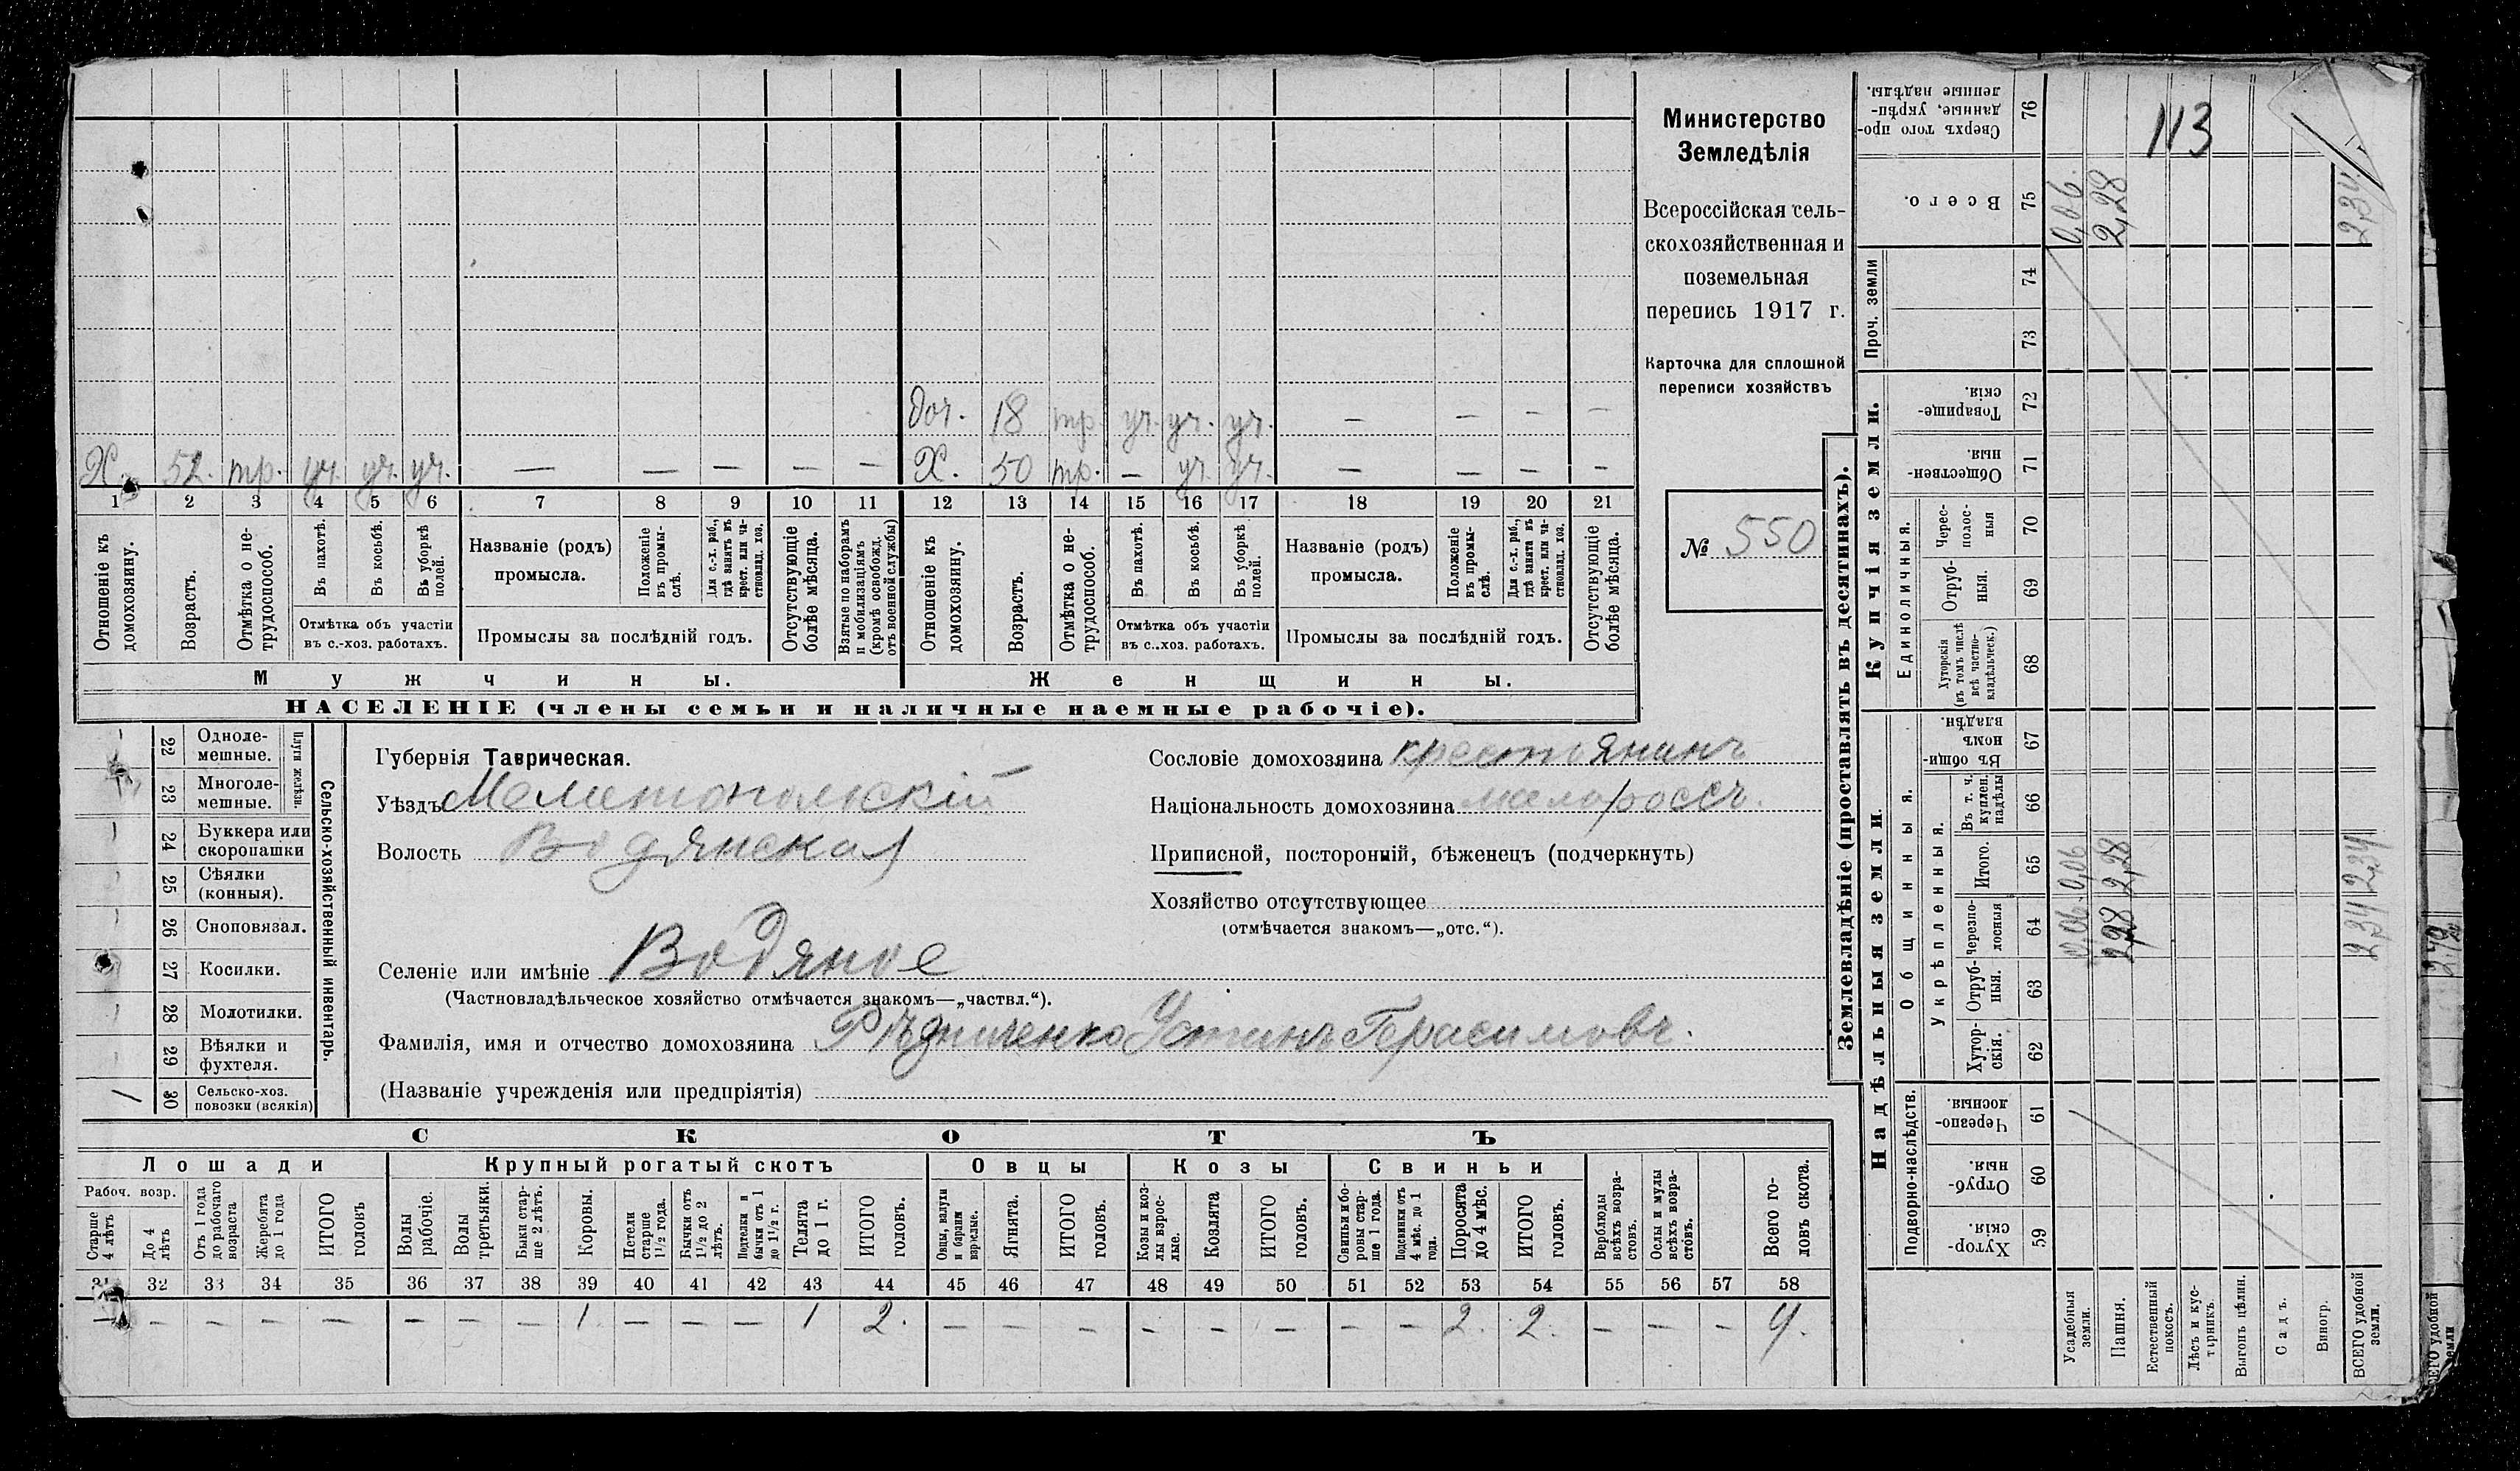 Министерство
Земледѣлія
Всероссійская сель-
скохозяйственная и
поземельная
перепись 1917 г.
Карточка для сплошной
переписи хозяйствъ
№ 550
113
доч. 18 тр. уч. уч. уч. — — — —
Х. 52. тр. уч. уч. уч. — — — — — Х. 50 тр. — уч. уч. — — — —
1 2 3 4 5 6 7 8 9 10 11 12 13 14 15 16 17 18 19 20 21
Отношеніе къ домохозяину.
Возрастъ.
Отмѣтка о не-трудоспособ.
Въ пахотѣ.
Въ косьбѣ.
Въ уборкѣ полей.
Отмѣтка объ участіи
въ с.-хоз. работахъ.
Названіе (родъ)
промысла.
Положеніе въ промы-слѣ.
Для с.-х. раб., гдѣ занятъ въ крест. или ча-стновлад. хоз.
Промыслы за послѣдній годъ.
Отсутствующіе болѣе мѣсяца.
Взятые по наборамъ и мобилизаціямъ (кромѣ освобожд. отъ военной службы)
Отношеніе къ домохозяину.
Возрастъ.
Отмѣтка о не-трудоспособ.
Въ пахотѣ.
Въ косьбѣ.
Въ уборкѣ полей.
Отмѣтка объ участіи
въ с..хоз. работахъ.
Названіе (родъ)
промысла.
Положеніе въ промы-слѣ.
Для с.-х. раб., гдѣ занята въ крест. или ча-стновлад. хоз.
Промыслы за послѣдній годъ.
Отсутствующіе болѣе мѣсяца.
Мужчины. Женщины.
НАСЕЛЕНІЕ (члены семьи и наличные наемные рабочіе).
Сельско-хозяйственный инвентарь.
Плуги желѣзн.
22 Одноле-мешные.
23 Многоле-мешные.
24 Буккера или скоропашки
25 Сѣялки (конныя).
26 Сноповязал.
27 Косилки.
28 Молотилки.
29 Вѣялки и фухтеля.
30 Сельско-хоз. повозки (всякія)
1
Губернія Таврическая.
Уѣздъ Мелитопольскій
Волость Водянская
Селеніе или имѣніе Водяное
(Частновладѣльческое хозяйство отмѣчается знакомъ—„частвл.“).
Фамилія, имя и отчество домохозяина Рѣдниченко Устинъ Герасимовъ.
(Названіе учрежденія или предпріятія)
Сословіе домохозяина крестьянинъ
Національность домохозяина малороссъ.
Приписной, посторонній, бѣженецъ (подчеркнуть)
Хозяйство отсутствующее
(отмѣчается знакомъ—„отс.“).
СКОТЪ
Лошади Крупный рогатый скотъ Овцы Козы Свиньи
Рабоч. возр.
Старше 4 лѣтъ
До 4 лѣтъ
Отъ 1 года до рабочаго возраста
Жеребята до 1 года
ИТОГО головъ
Волы рабочіе.
Волы третьяки.
Быки стар-ше 2 лѣтъ.
Коровы.
Нетели старше 1½ года.
Бычки отъ 1½ до 2 лѣтъ.
Подтелки и бычки отъ 1 до 1½ г.
Телята до 1 г.
ИТОГО головъ.
Овцы, валухи и бараны взрослые.
Ягнята.
ИТОГО головъ.
Козы и коз-лы взрос-лые.
Козлята
ИТОГО головъ.
Свиньи и бо-ровы стар-ше 1 года.
Подсвинки отъ 4 мѣс. до 1 года.
Поросята до 4 мѣс.
ИТОГО головъ.
Верблюды всѣхъ возра-стовъ.
Ослы и мулы всѣхъ возра-стовъ.
Всего го-ловъ скота.
31 32 33 34 35 36 37 38 39 40 41 42 43 44 45 46 47 48 49 50 51 52 53 54 55 56 57 58
— — — — — — — — 1 — — — 1 2. — — — — — — — — 2. 2. — — — 4.
Землевладѣніе (проставлять въ десятинахъ).
Купчія земли.
Надѣльныя земли.
Сверхъ того про-данные, укрѣп-ленные надѣлы. 76
Всего. 75 0,06. 2,28 2,34
Проч. земли 74 73
Товарище-скія. 72
Обществен-ныя 71
Единоличныя.
Черес-полос-ныя 70
Отруб-ныя. 69
Хуторскія (въ томъ числѣ всѣ частно-владѣльческ.) 68
Общинныя.
Въ общи-номъ владѣн. 67
Укрѣпленныя.
Въ т. ч. куплен. надѣлы 66
Итого. 65 0,06 2,28 2,34
Черезпо-лосныя 64 0,06. 2,28 2,34
Отруб-ныя. 63
Хутор-скія. 62
Подворно-наслѣдств.
Черезпо-лосныя. 61
Отруб-ныя. 60
Хутор-скія. 59
Усадебныя земли.
Пашня.
Естественный покосъ.
Лѣсъ и кус-тарникъ.
Выгонъ цѣлин.
Садъ.
Виногр.
ВСЕГО удобной земли.